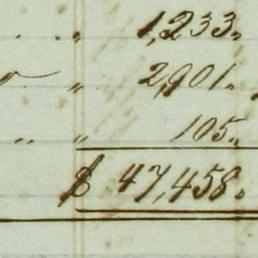 . „ 1,233.
„ 2,901.
„ „ 105.
$ 47,458.